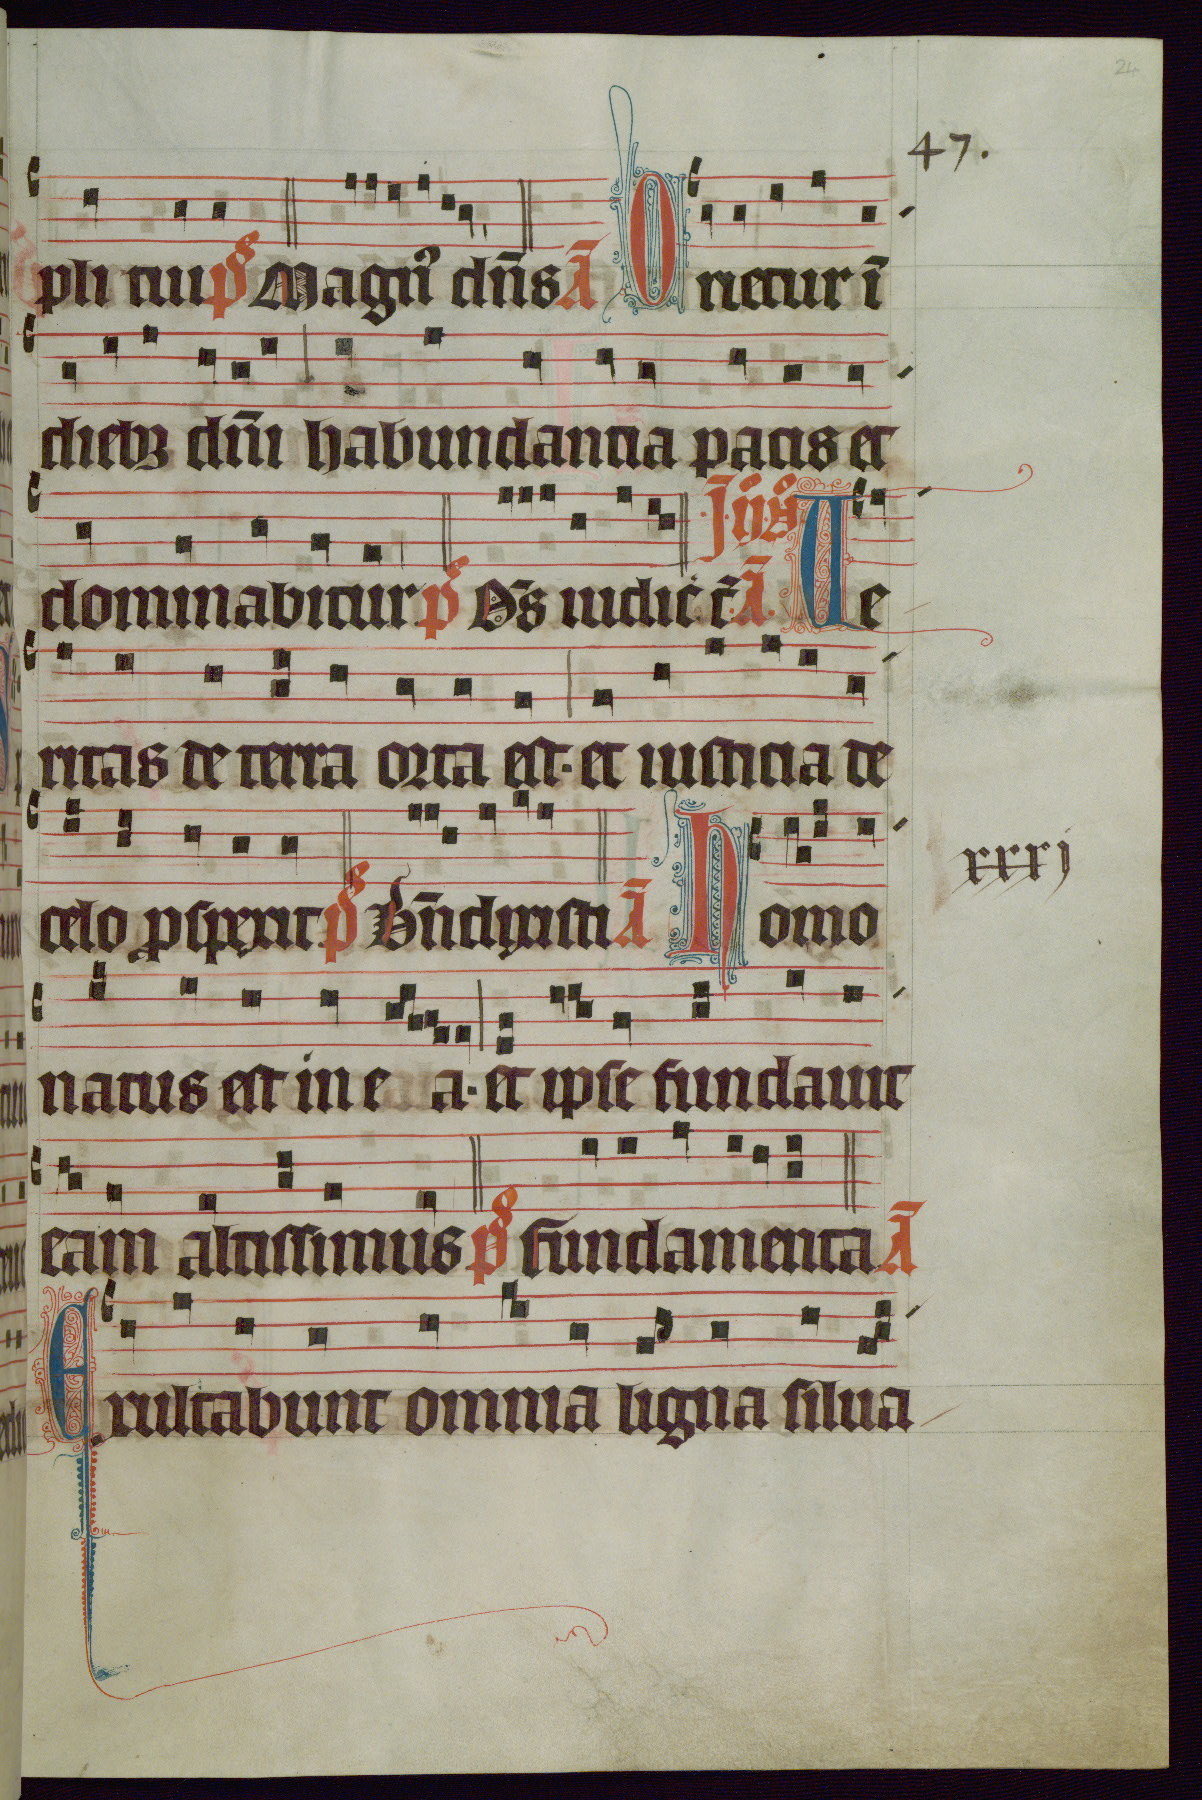 24
47.
pli tui ps Magn9 dn̄s Ā Orietur ī
diebꝫ dn̄i habundantia pacis et
In .ij. N̄
dominabitur ps Ds̄ iudic̄ t̄ Ā Ue
ritas de terra orta est· et iusticia de
celo ꝓspexit ps Bn̄dixisti Ā Homo
xxxj
natus est in e a· et ipse fundauit
eam altissimus ps Fundamenta Ā
Exultabunt omnia ligna silua